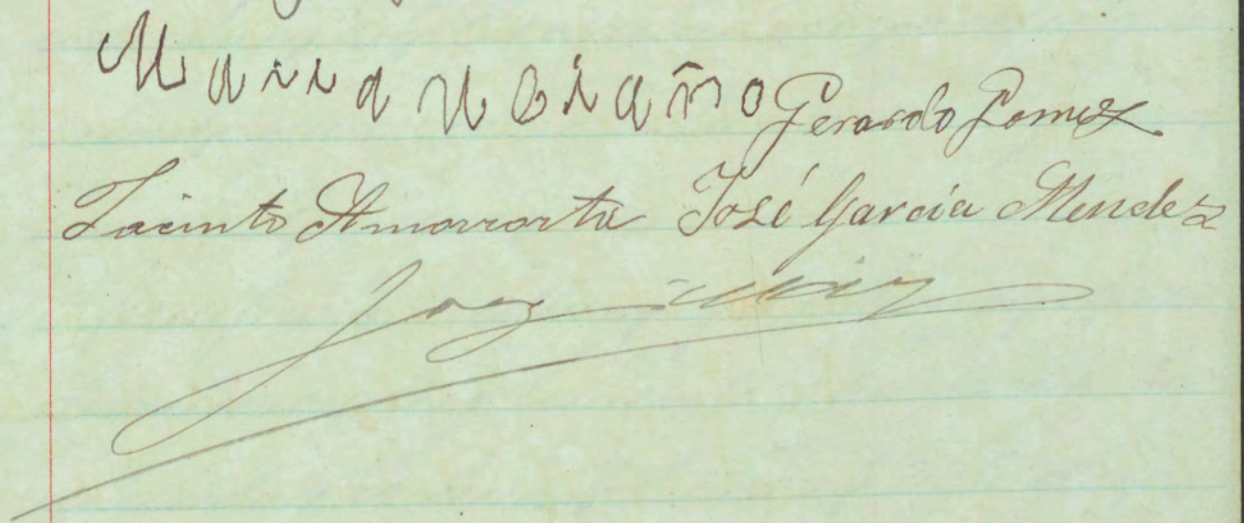 Maria Ubiaño Gerardo Gomez
Jacinto Amorrortu José García Mendez